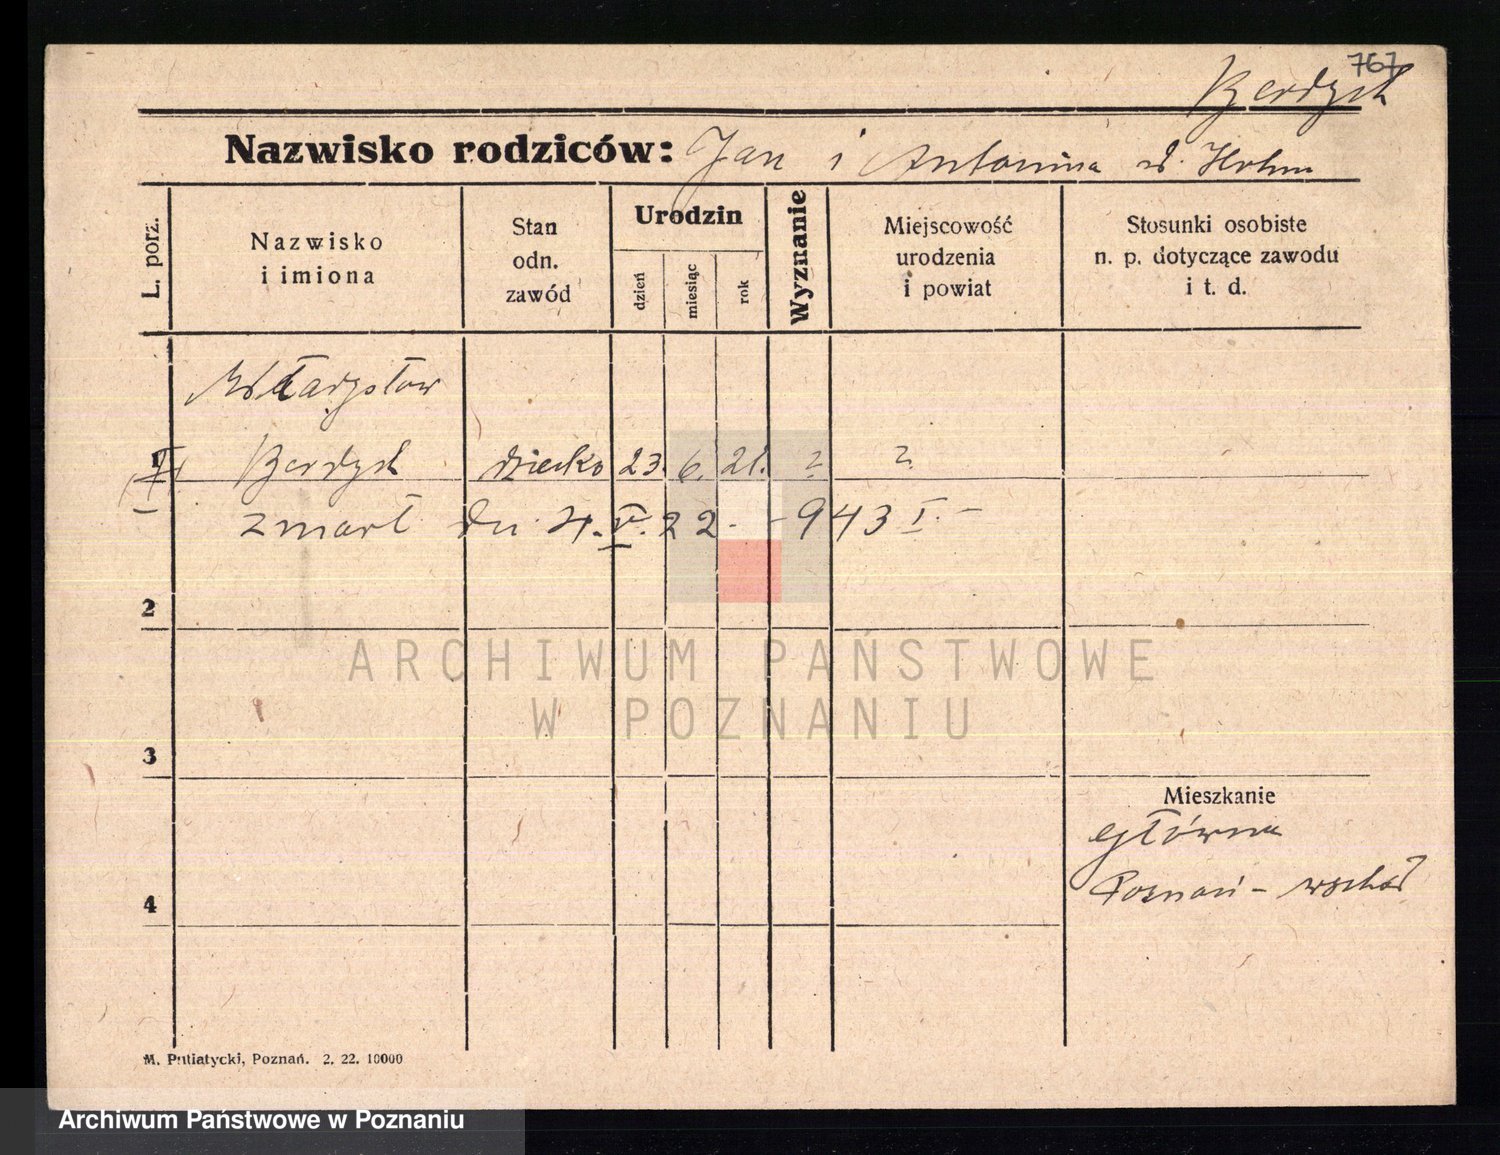 767
Berdych
Nazwisko rodziców: Jan i Antonina
L. porz.
Nazwisko
i imiona
Stan
odn.
zawód
Urodzin
dzień
miesiąc
rok
Wyznanie
Miejscowość
urodzenia
i powiat
Stosunki osobiste
n. p. dotyczące zawodu
i t. d.
Władysław
1 Berdych dziecko 23. 6. 21. ? ?
zmarł dn. 4. V. 22. - 943 I. -
2
ARCHIWUM PAŃSTWOWE
W POZNANIU
3
Mieszkanie
Główna
Poznań - wschód
4
M. Putiatycki, Poznań. 2. 22. 10000
Archiwum Państwowe w Poznaniu